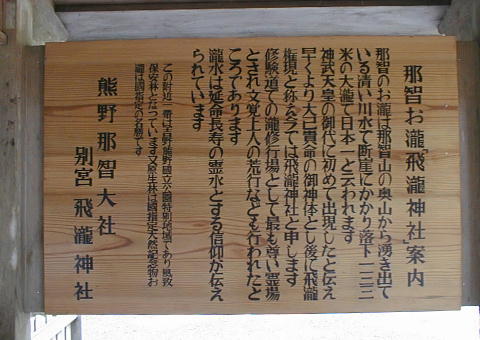 那智お瀧『飛瀧神社』案内
那智のお瀧は那智山の奥山から湧き出て
いる清い川水で断崖にかかり落下一三三
米の大瀧で日本一と云われます
神武天皇の御代に初めて出現したと伝え
早くより大己貴命の御神体とし後に飛瀧
権現と称え今では飛瀧神社と申します
修験道での瀧修行場として最も尊い霊場
とされ文覚上人の荒行なども行われたと
ころであります
瀧水は延命長寿の霊水とする信仰が伝え
られています
この附近一帯は吉野熊野國立公園特別地域であり風致
保安林となっています又原生林は國指定天然記念物お
瀧は國指定の名勝です
熊野那智大社
別宮 飛瀧神社